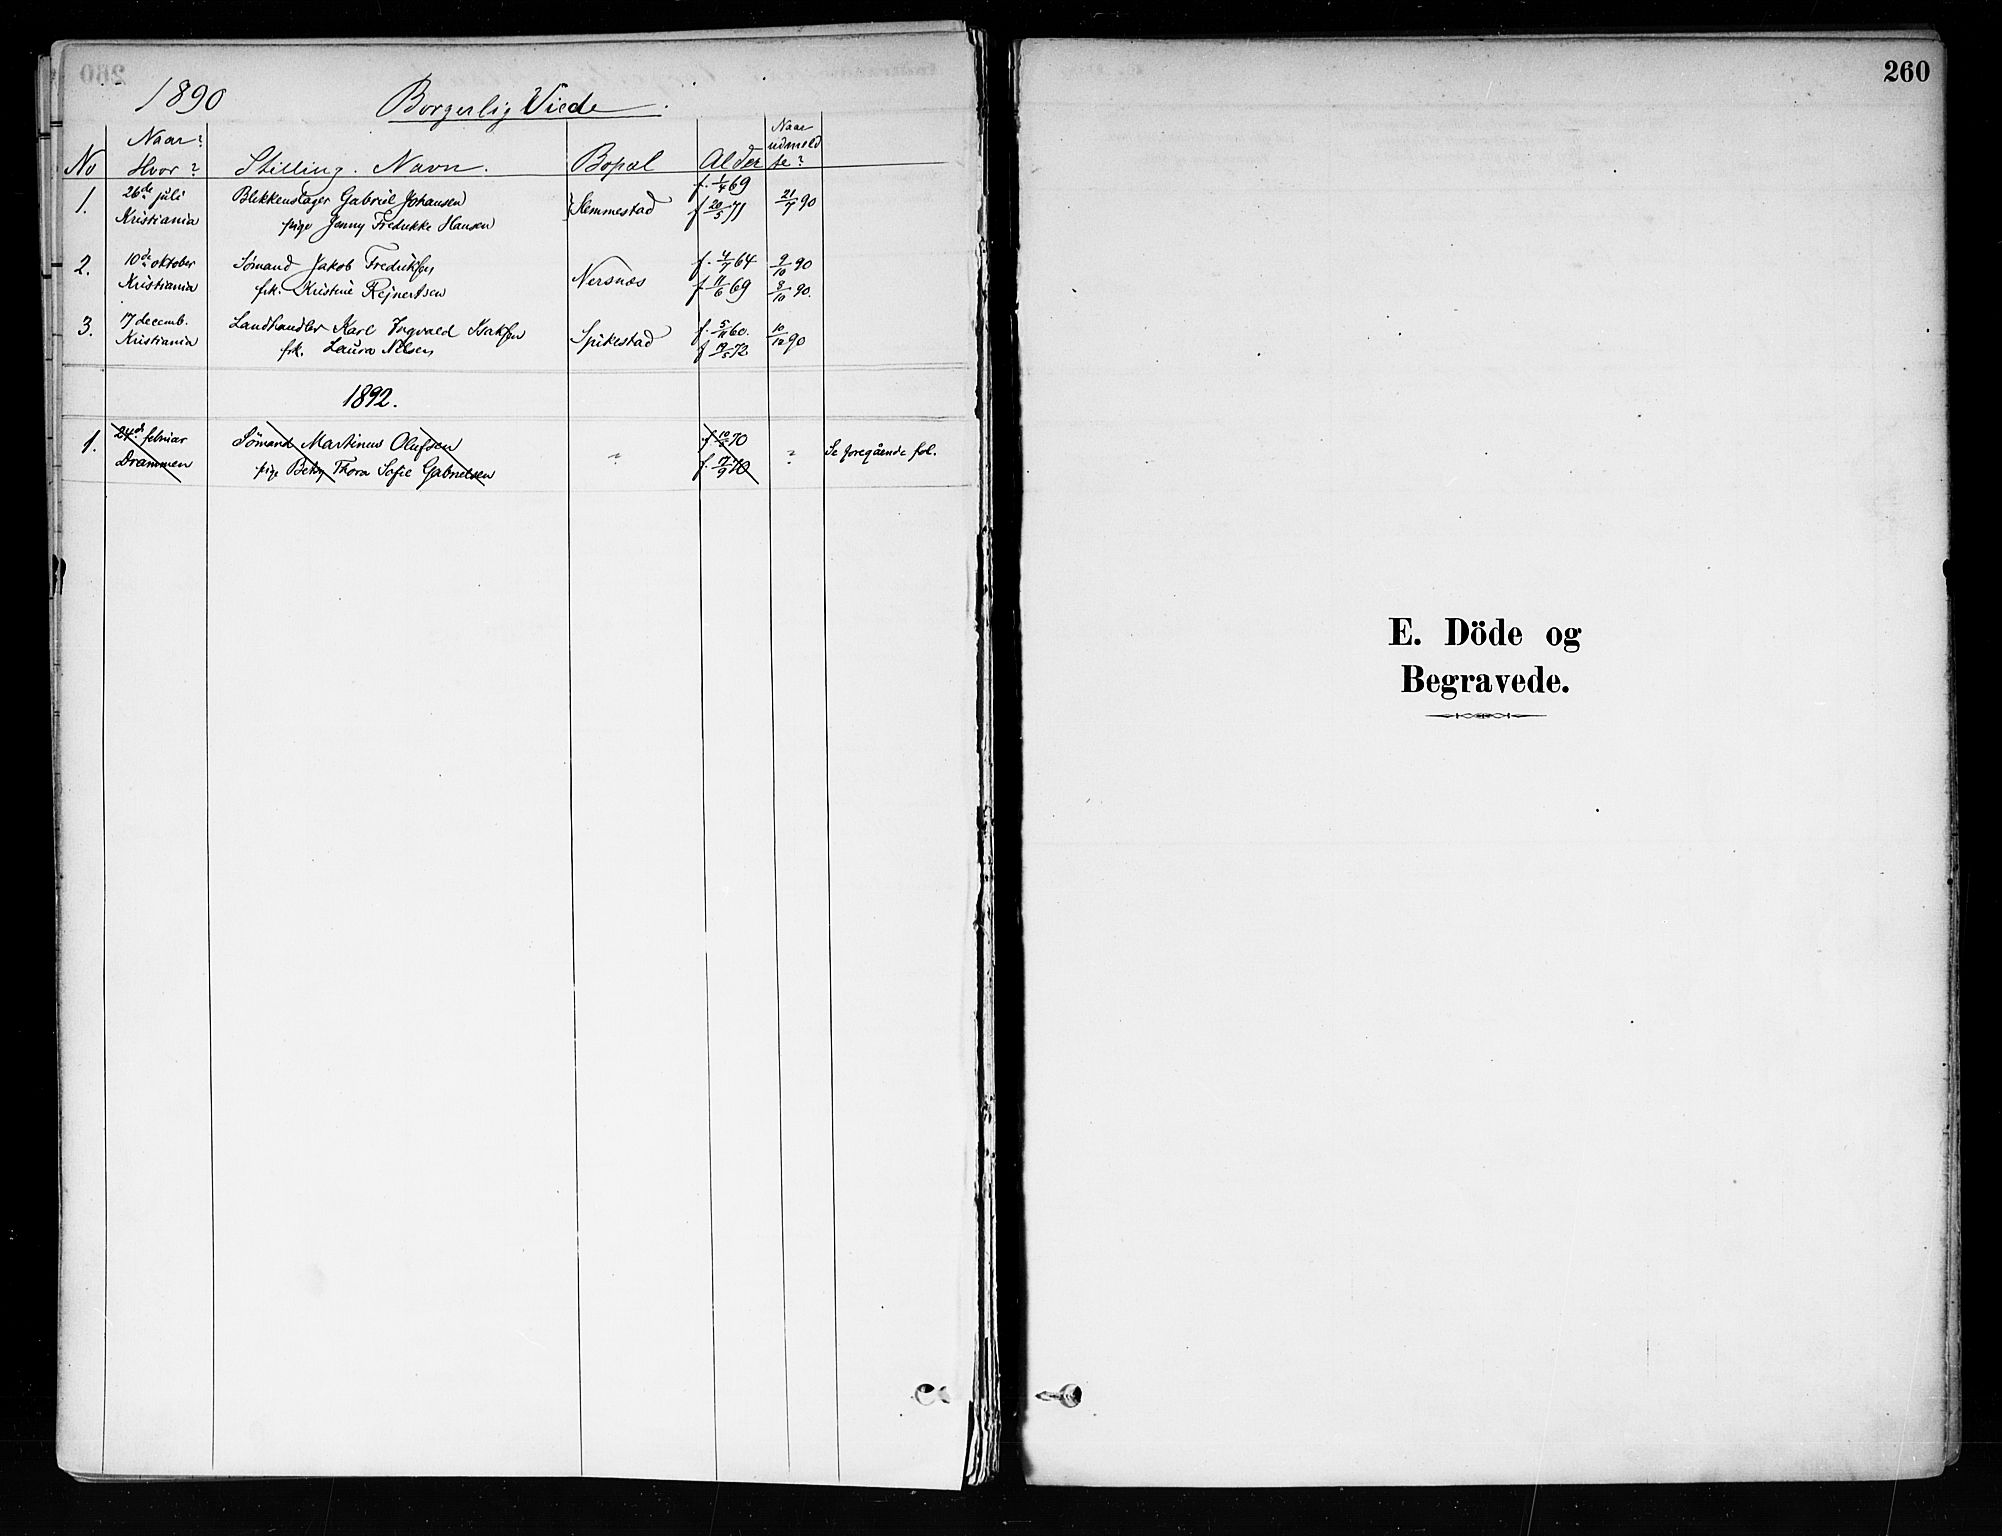 1890 Borgerlig Viede.
No Naar? Hvor? Stilling. Navn. Bopæl Alder Naar udmeldte?
1. 26de juli Blikkenslager Gabriel Johansen f. 1/4 69 21/7 90
Kristiania pige Jenny Fredrikke Hansen f 20/5 71
2. 10de oktober Sømand Jakob Fredriksen Nersnæs f. 4/7 64 9/10 90
Kristiania frk. Kristine Rejnertsen f 11/6 69 8/10 90.
3. 17 decemb. Landhandler Karl Ingvald Isaksen Spikestad f. 5/11 60. 10/12 90
Kristiania frk. Laura Nilsen f 19/5 72
1892.
1. 24de februar Sømand Martinus Olufsen f 10/2 70 Se foregående fol.
Drammen pige Betsy Thora Sofie Gabrielsen f. 17/9 70
260
E. Döde og
Begravede.